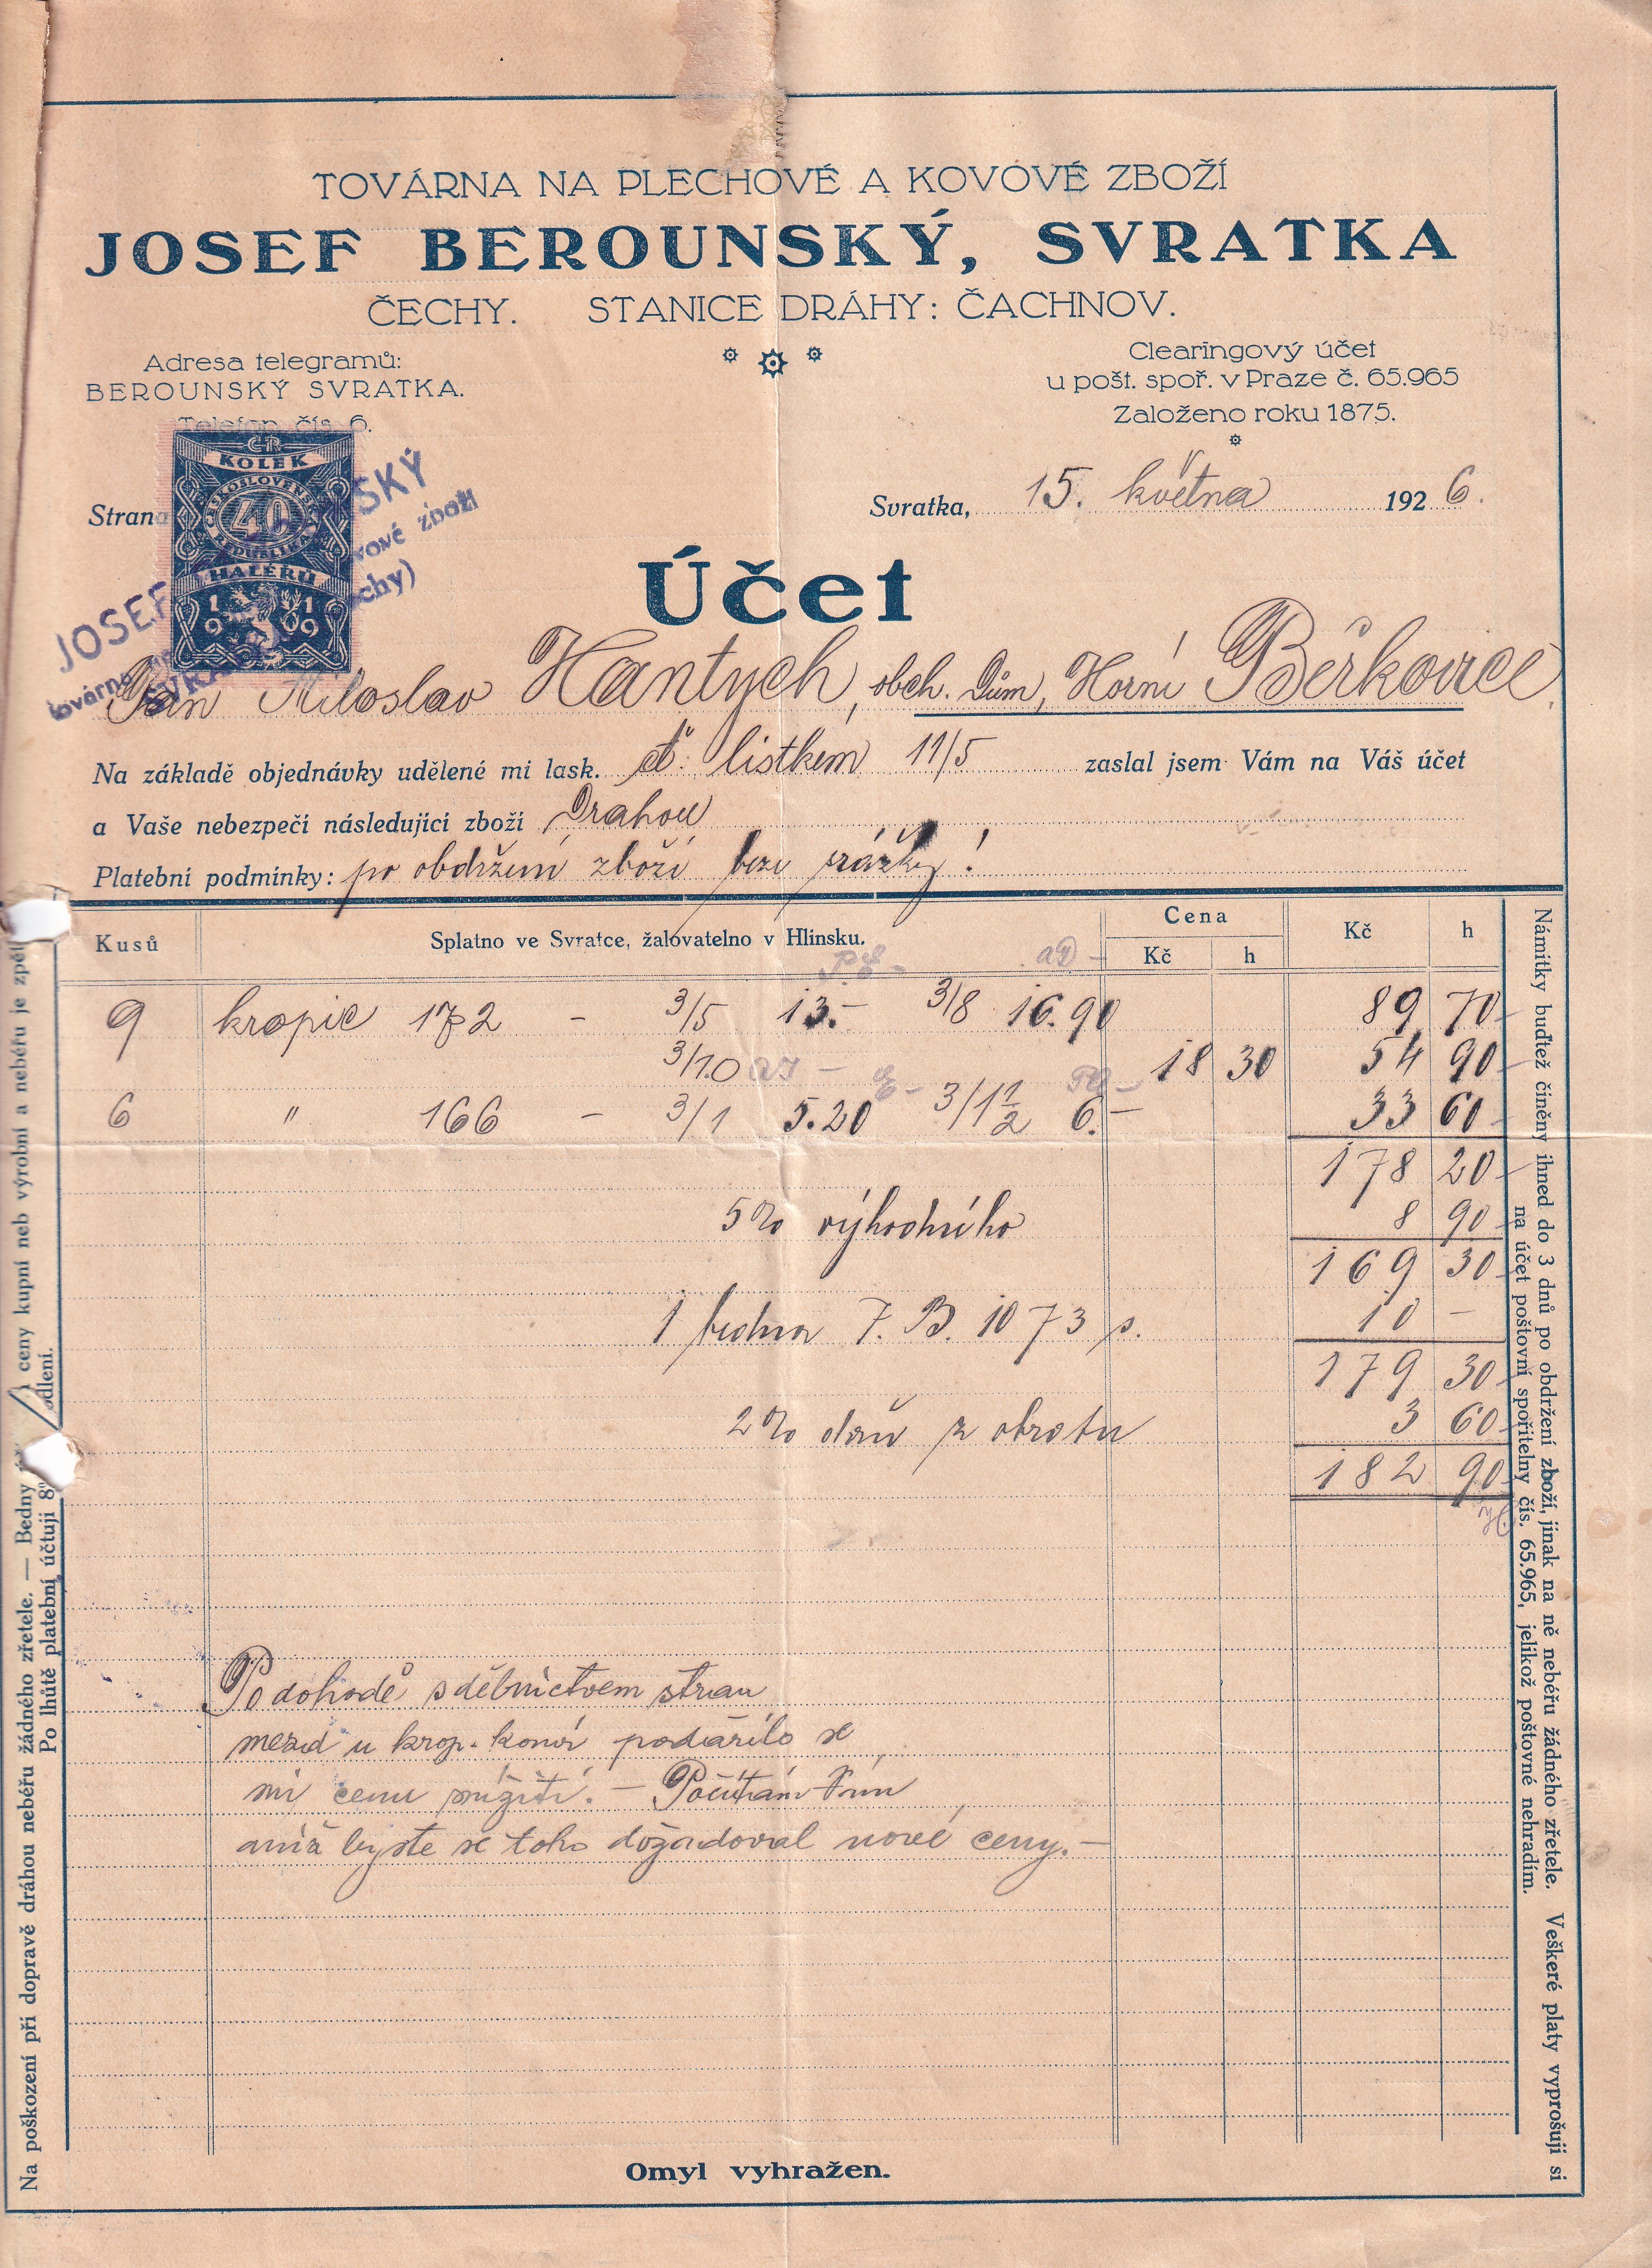 TOVÁRNA NA PLECHOVÉ A KOVOVÉ ZBOŽÍ
JOSEF BEROUNSKÝ, SVRATKA
ČECHY. STANICE DRÁHY: ČACHNOV.
Adresa telegramů:
BEROUNSKÝ SVRATKA.
Telefon čís. 6.
Clearingový účet
u pošt. spoř. v Praze č. 65.965
Založeno roku 1875.
ČR
KOLEK
ČESKOSLOVENSKÁ
40
REPUBLIKA
HALÉŘŮ
1919
JOSEF SKÝ
továrna kovové zboží
SVRATKA (Čechy)
Strana
Svratka, 15. května 1926.
Účet
Pan Miloslav Hantych, obch. dům, Horní Beřkovice
Na základě objednávky udělené mi lask. ct. lístkem 11/5 zaslal jsem Vám na Váš účet
a Vaše nebezpečí následující zboží Drahou
Platební podmínky: po obdržení zboží beze srážky!
Kusů
Splatno ve Svratce, žalovatelno v Hlinsku.
Cena
Kč h
Kč h
9 kropic 172 - 3/5 13.- 3/8 16.90 89 70
3/10 18 30 54 90
6 " 166 - 3/1 5.20 3/1½ 6.- 33 60
178 20
5% výhodného 8 90
169 30
1 bedna J. B. 1073 s. 10 -
179 30
2% daň z obratu 3 60
182 90
Po dohodě s dělnictvem stran
mezd u krop. konví podařilo se
mi cenu snížiti. - Počítám Vám
aniž byste se toho dožadoval nové ceny. -
Omyl vyhražen.
Na poškození při dopravě dráhou neběřu žádného zřetele. — Bedny ceny kupní neb výrobní a neběřu je zpět
Po lhůtě platební účtuji 8%
Námitky buďtež činěny ihned do 3 dnů po obdržení zboží, jinak na ně neběřu žádného zřetele. Veškeré platy vyprošuji si
na účet poštovní spořitelny čís. 65.965, jelikož poštovné nehradím.